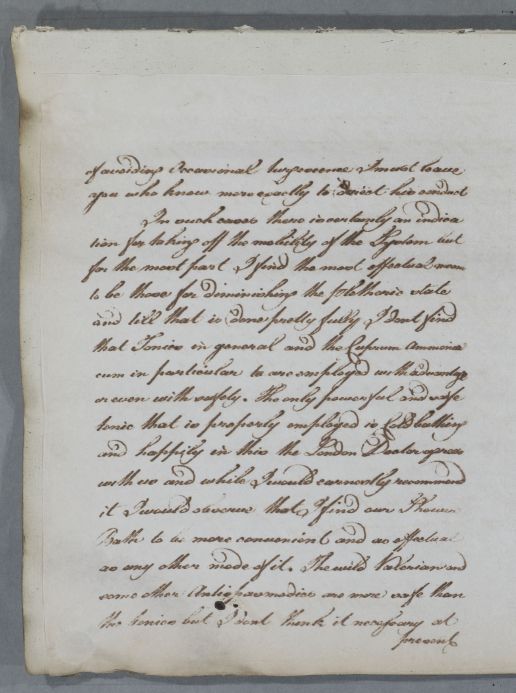 of avoiding Occasional turgescence I must leave
you who know more exactly to direct his conduct
In such cases there is certainly an indica
tion for taking off the mobility of the System but
for the most part I find the most effectual means
to be those for diminishing the plethoric state
and till that is done pretty fully I dont find
that Tonics in general and the Cuprum Ammonia
cum in particular to are employed with advantage
or even with safety. The only powerful and safe
tonic that is properly employed is Cold bathing
and happily in this the London Doctor agrees
with us and while I would earnestly recommend
it I would observe that I find our Shower
Bath to be more convenient and as effectual
as any other mode of it. The wild Valerian and
some other Antispasmodics are more safe than
the tonics but I dont think it necessary at
present